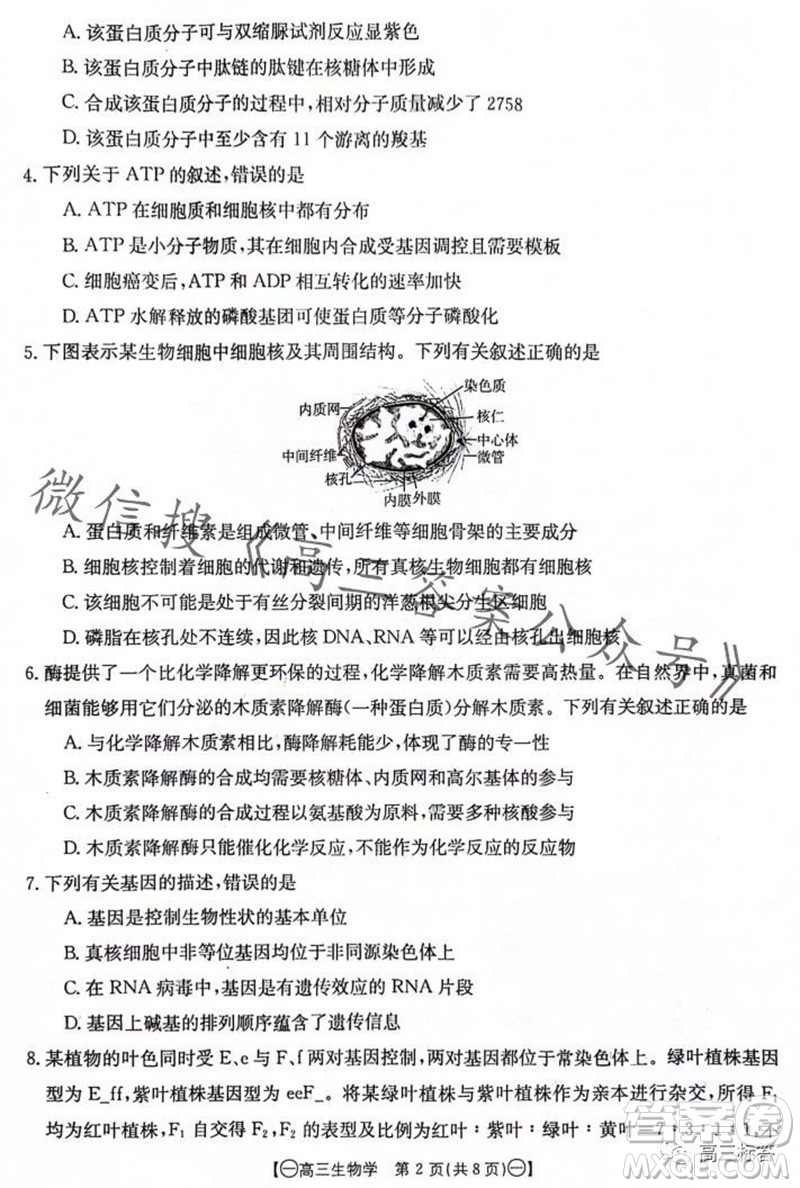 A. 该蛋白质分子可与双缩脲试剂反应显紫色
B. 该蛋白质分子中肽链的肽键在核糖体中形成
C. 合成该蛋白质分子的过程中,相对分子质量减少了 2758
D. 该蛋白质分子中至少含有 11 个游离的羧基
4. 下列关于 ATP 的叙述,错误的是
A. ATP 在细胞质和细胞核中都有分布
B. ATP 是小分子物质,其在细胞内合成受基因调控且需要模板
C. 细胞癌变后,ATP 和 ADP 相互转化的速率加快
D. ATP 水解释放的磷酸基团可使蛋白质等分子磷酸化
5. 下图表示某生物细胞中细胞核及其周围结构。下列有关叙述正确的是
染色质
内质网
核仁
中心体
中间纤维
微管
核孔
内膜 外膜
A. 蛋白质和纤维素是组成微管、中间纤维等细胞骨架的主要成分
B. 细胞核控制着细胞的代谢和遗传,所有真核生物细胞都有细胞核
C. 该细胞不可能是处于有丝分裂间期的洋葱根尖分生区细胞
D. 磷脂在核孔处不连续,因此核 DNA、RNA 等可以经由核孔出细胞核
微信搜《高三答案公众号》
6. 酶提供了一个比化学降解更环保的过程,化学降解木质素需要高热量。在自然界中,真菌和
细菌能够用它们分泌的木质素降解酶(一种蛋白质)分解木质素。下列有关叙述正确的是
A. 与化学降解木质素相比,酶降解耗能少,体现了酶的专一性
B. 木质素降解酶的合成均需要核糖体、内质网和高尔基体的参与
C. 木质素降解酶的合成过程以氨基酸为原料,需要多种酶的参与
D. 木质素降解酶只能催化化学反应,不能作为化学反应的反应物
7. 下列有关基因的描述,错误的是
A. 基因是控制生物性状的基本单位
B. 真核细胞中非等位基因均位于非同源染色体上
C. 在 RNA 病毒中,基因是有遗传效应的 RNA 片段
D. 基因上碱基的排列顺序蕴含了遗传信息
8. 某植物的叶色同时受 E、e 与 F、f 两对基因控制,两对基因都位于常染色体上。绿叶植株基因
型为 E_ff,紫叶植株基因型为 eeF_。将某绿叶植株与紫叶植株作为亲本进行杂交,所得 F₁
均为红叶植株,F₁ 自交得 F₂,F₂ 的表型及比例为红叶∶紫叶∶绿叶∶黄叶=7∶3∶1∶1,不
答案圈
高三标答
【㊀高三生物学 第 2 页(共 8 页)㊀】